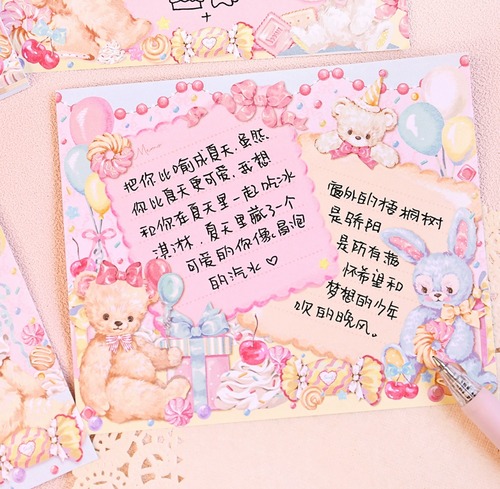 Memo
把你比喻成夏天 虽然
你比夏天更可爱, 我想
和你在夏天里一起吃冰
淇淋. 夏天里藏了一个
可爱的你像冒泡
的汽水♡
窗外的梧桐树
是骄阳
是所有满
怀希望和
梦想的少年
吹的晚风。